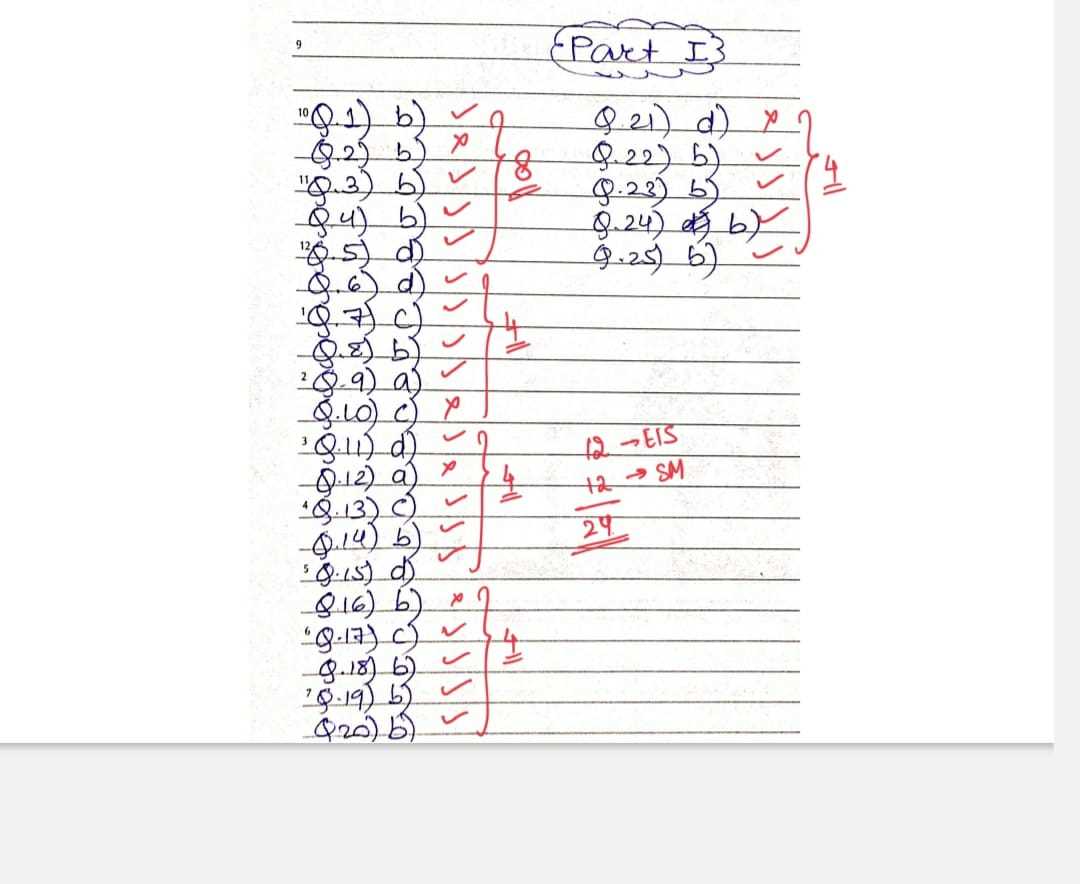 9
Part I
10 Q.1) b) ✓
Q.2) b) ✗
11 Q.3) b) ✓
8
Q.4) b) ✓
12 Q.5) d) ✓
Q.6) d) ✓
1 Q.7) c) ✓
4
Q.8) b) ✓
2 Q.9) a) ✓
Q.10) c) ✗
3 Q.11) d) ✓
Q.12) a) ✗
4
4 Q.13) c) ✓
Q.14) b) ✓
5 Q.15) d) ✓
Q16) b) ✗
6 Q.17) c) ✓
4
Q.18) b) ✓
7 Q.19) b) ✓
Q20) b) ✓
Q.21) d) ✗
Q.22) b) ✓
4
Q.23) b) ✓
Q.24) b) ✓
Q.25) b) ✓
12 → EIS
12 → SM
24